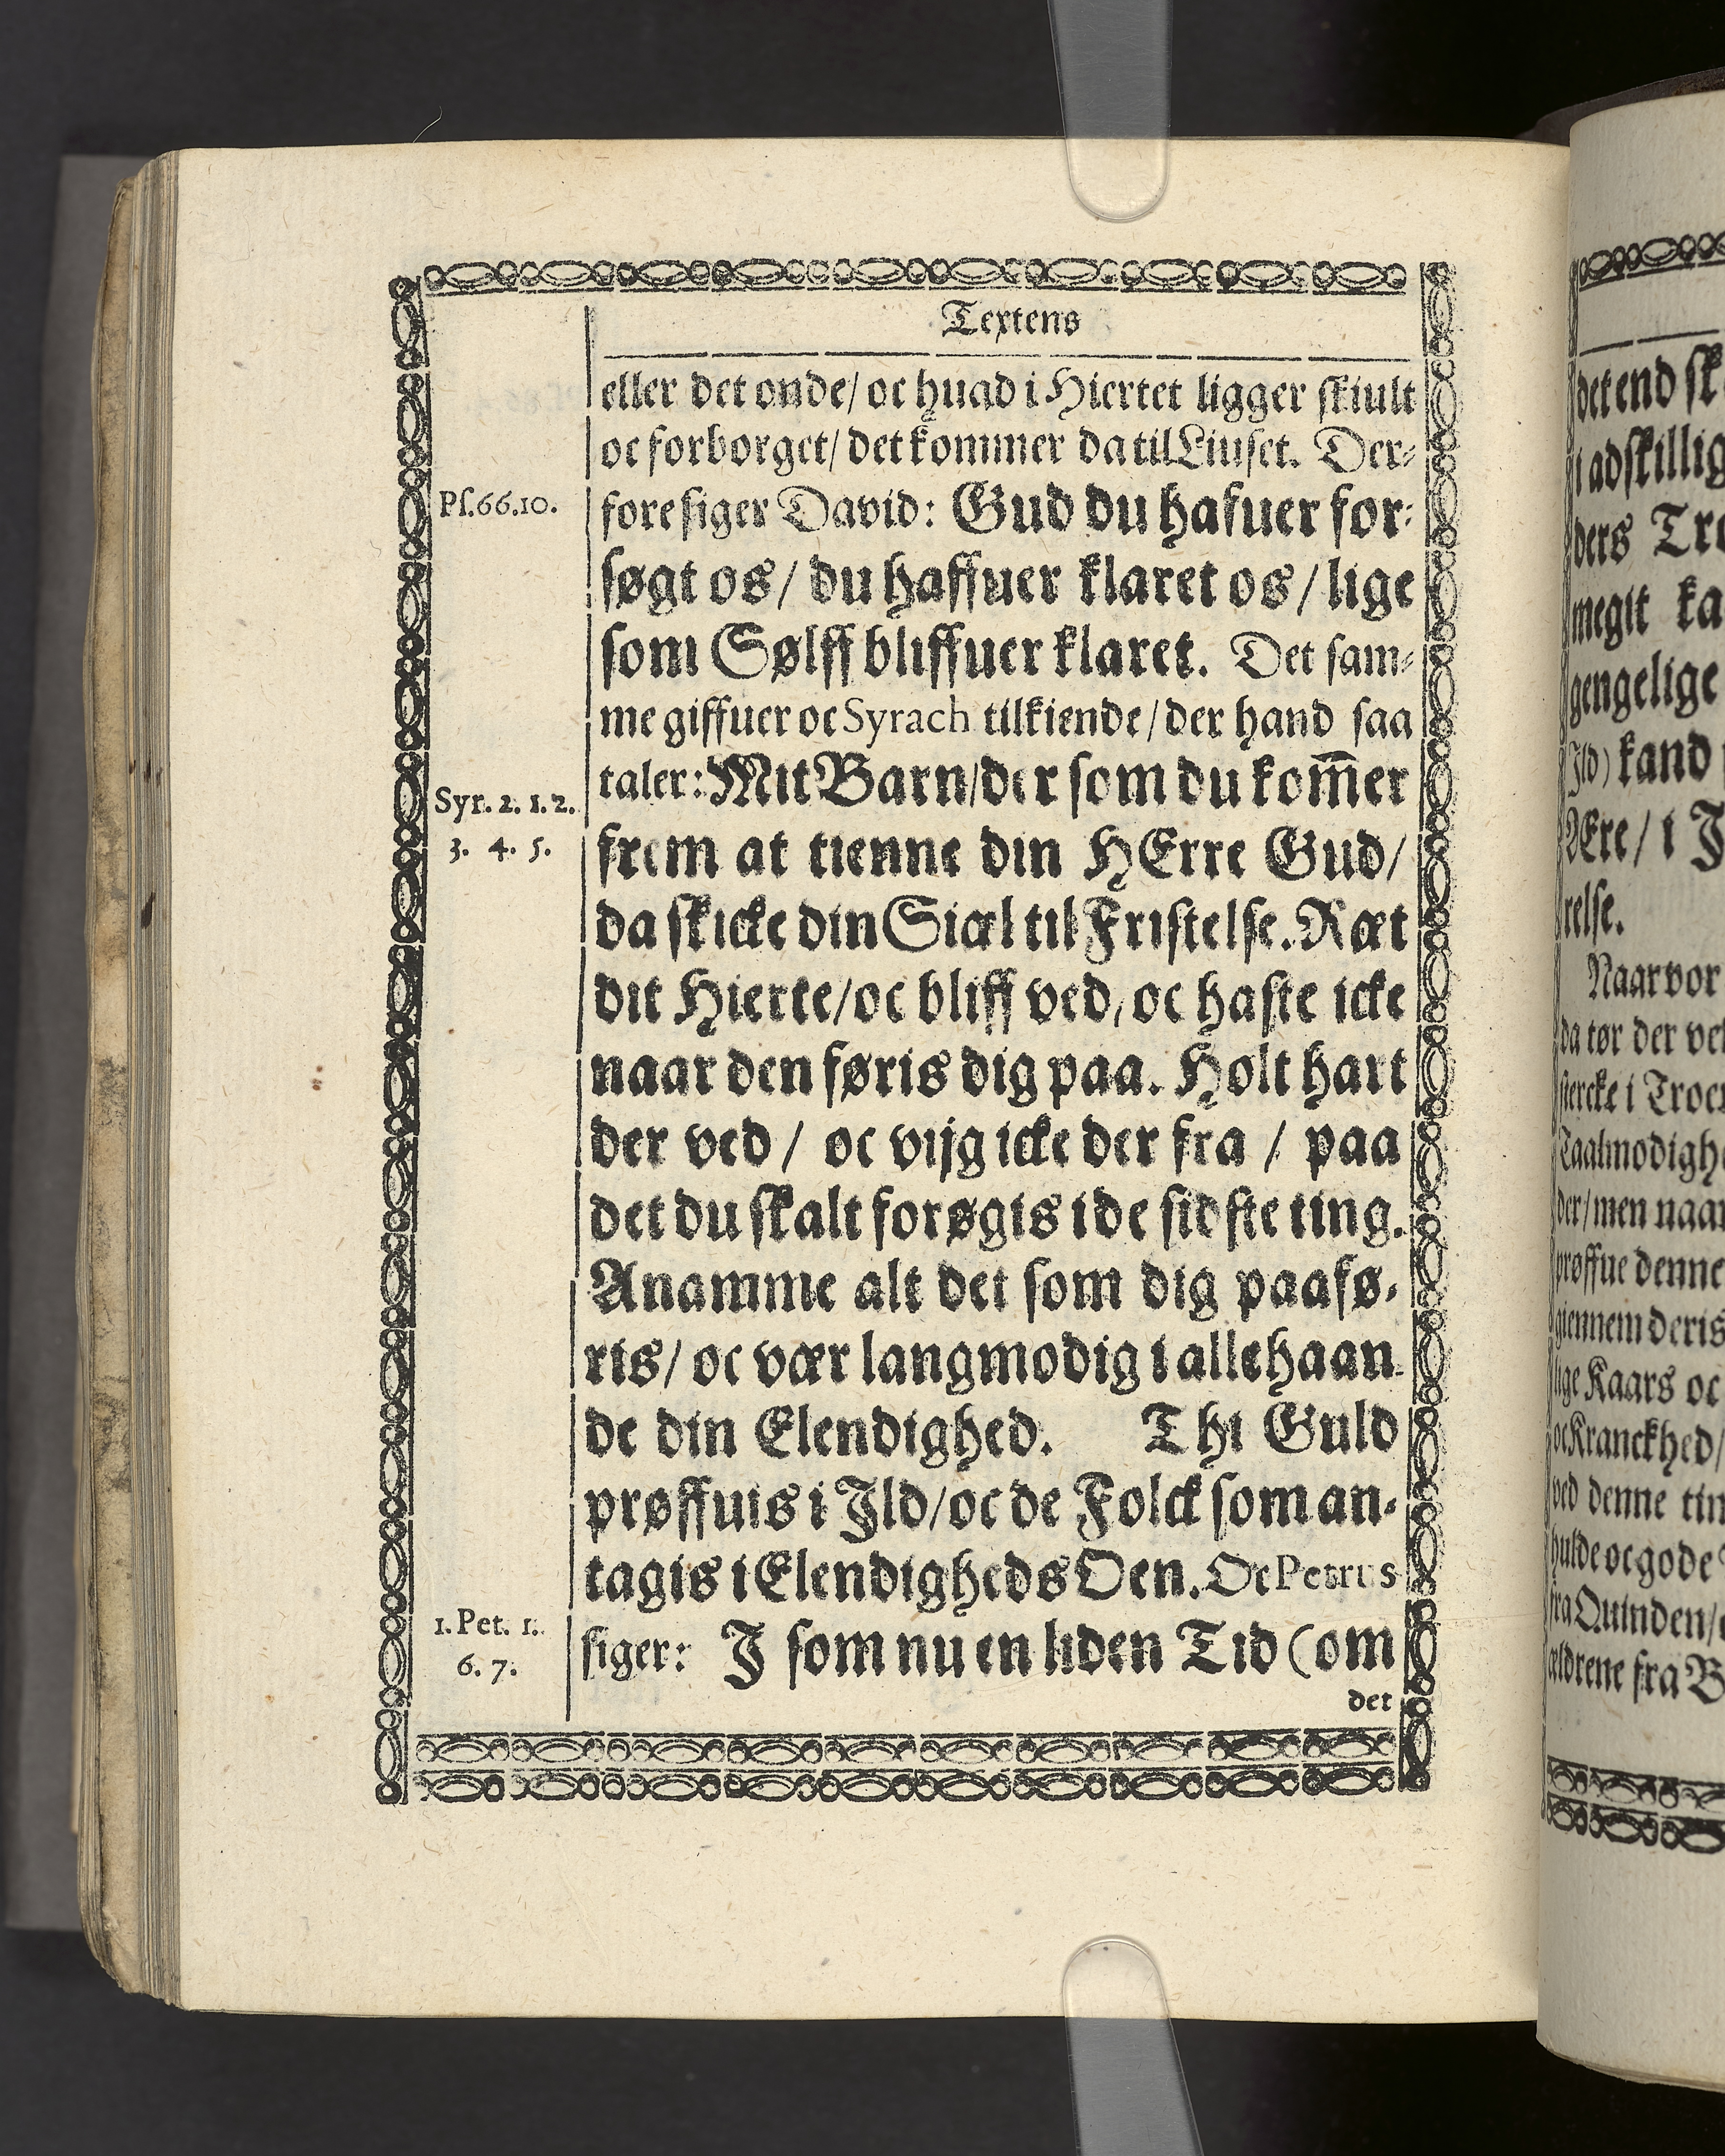 Textens
eller det onde/ oc huad i Hiertet ligger skiult
oc forborget/ det kommer da til Liuset. Der-
Ps.66.10.
fore siger David: Gud du hafuer for-
søgt os/ du haffuer klaret os/ lige
som Sølff bliffuer klaret. Det sam-
me giffuer oc Syrach tilkiende/ der hand saa
Syr. 2. 1. 2.
3. 4. 5.
taler: Mit Barn/ der som du kom̅er
frem at tienne din HErre Gud/
da skicke din Siæl til Fristelse. Ræt
dit Hierte/ oc bliff ved, oc haste icke
naar den føris dig paa. Holt hart
der ved/ oc vijg icke der fra/ paa
det du skalt forøgis i de sidste ting.
Anamme alt det som dig paafø-
ris/ oc vær langmodig i allehaan-
de din Elendighed. Thi Guld
prøffuis i Ild/ oc de Folck som an-
tagis i Elendigheds Oen. Oc Petrus
1. Pet. 1.
6. 7.
siger: J som nu en liden Tid (om
det
det end
i adskillig
ders
megit
gengelige
Ild) kand
Ære/ i
relse.
Naar vor
da tør der
stercke i
der/ men naar
prøffue denne
giennem deris
lige Kaars oc
oc Kranckhed/
ved denne
hulde oc gode
fra Quinden/
ældrene fra